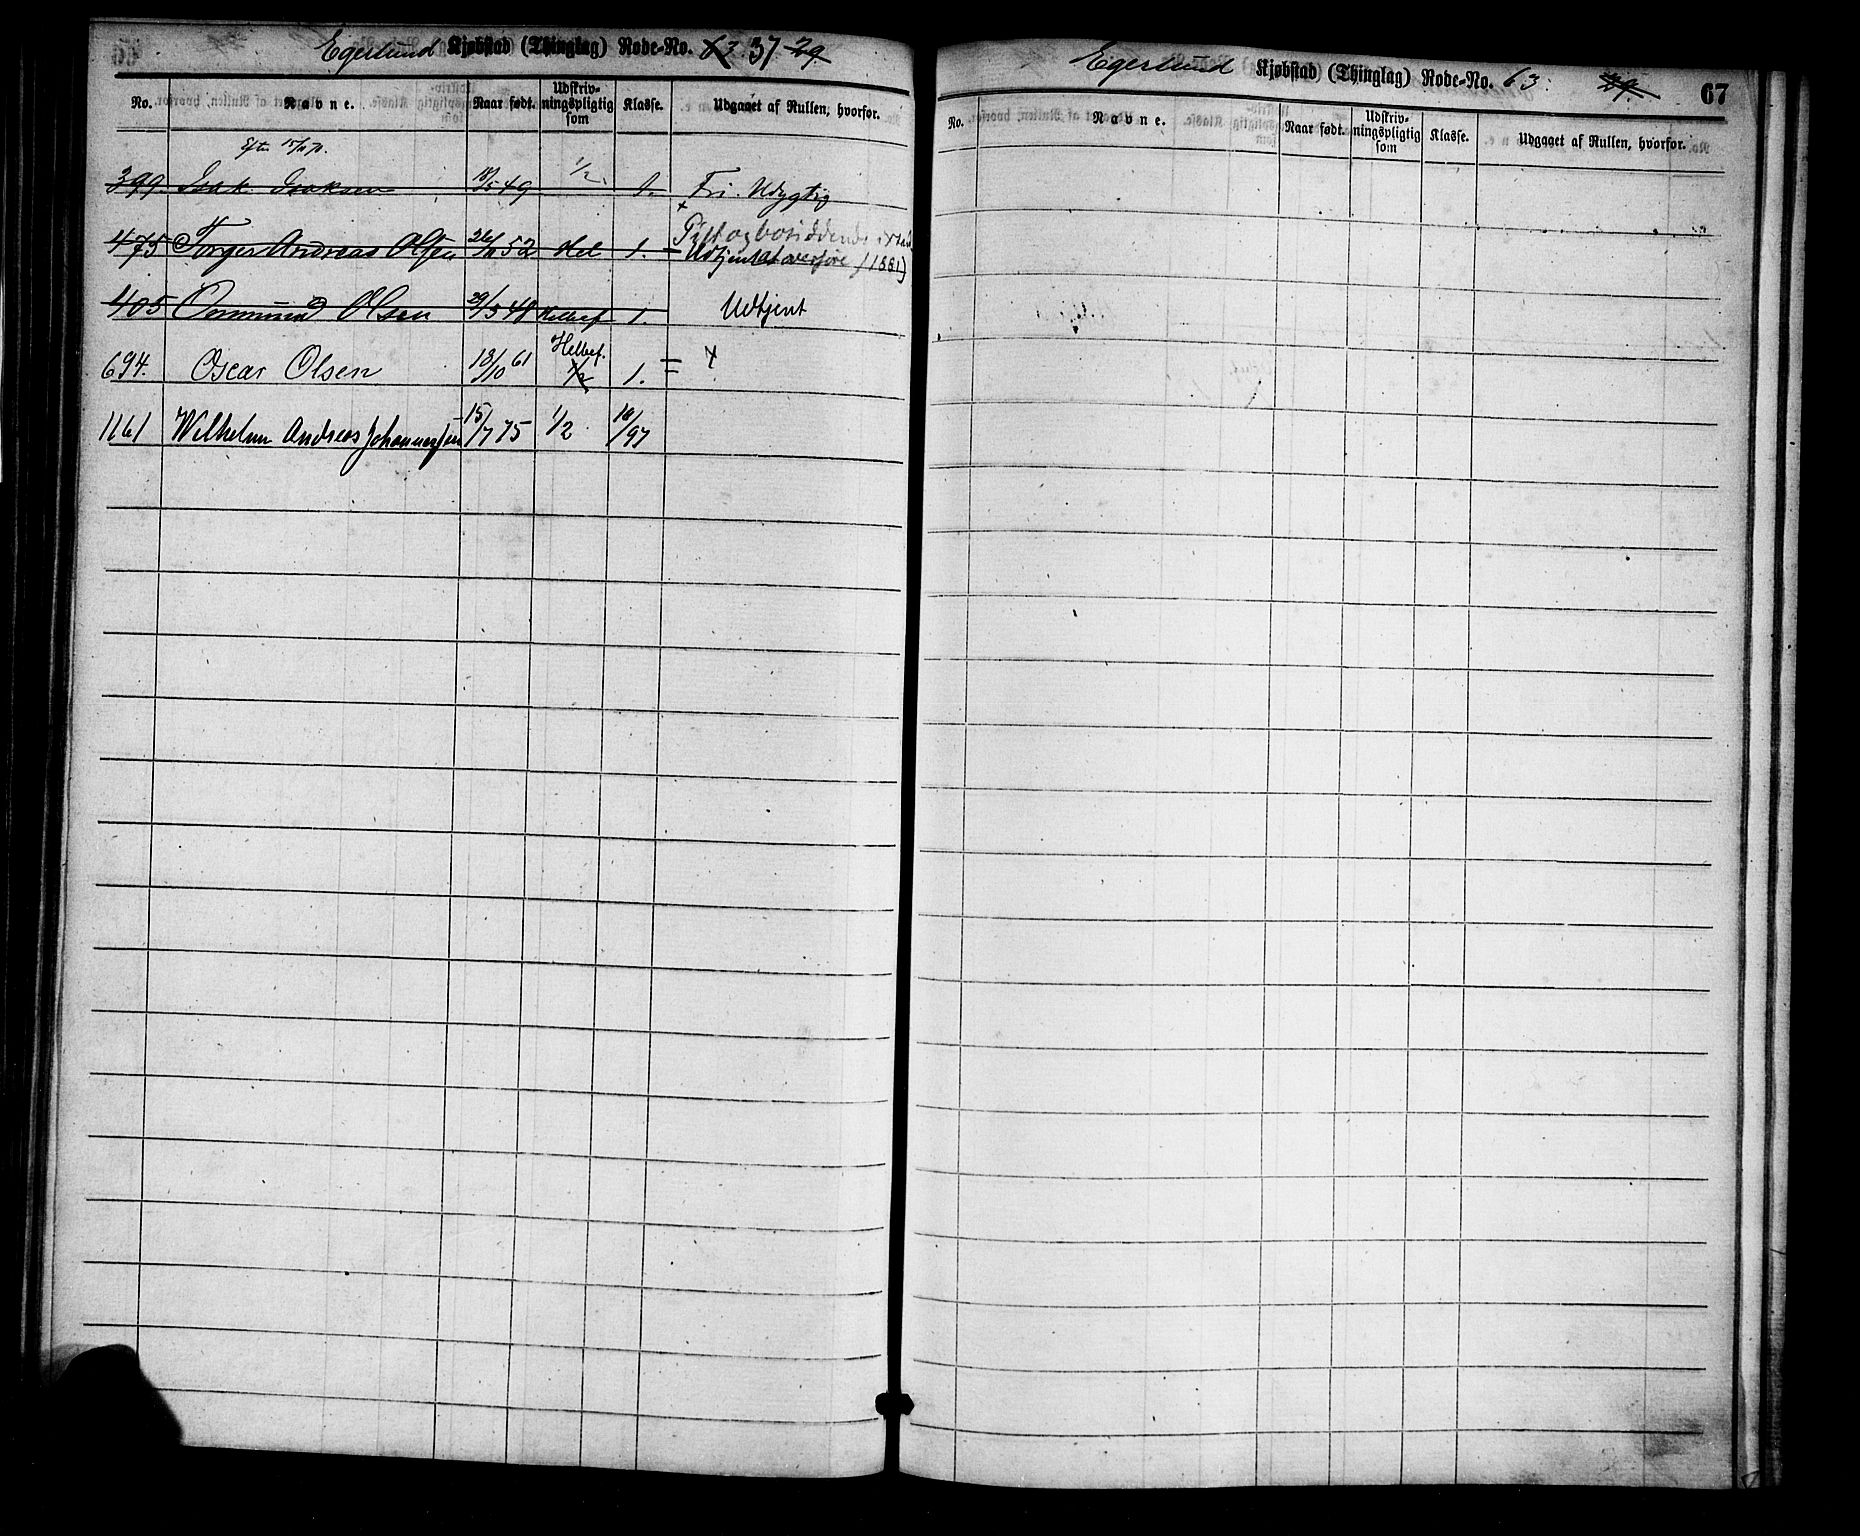 Egersund Kjøbstad (Thinglag) Rode-No. 63 37 29
No. Navne. Naar født. Udskrivningspligtig som Klasse. Udgaaet af Rullen, hvorfor.
399. Isak Isaksen 18/5 49 1/2 1. Fri. Udygtig
475 Torger Andreas Olsen 26/11 52 Hel 1. Gift og bosiddende
Udtjent overføre (1881)
405 Osmund Olsen 29/3 48 Helbef 1. Udtjent
694. Oscar Olsen 13/10 61 Helbef. 1/2 1. =
1161 Wilhelm Andreas Johannessen 15/7 75 1/2 10/97
Egersund Kjøbstad (Thinglag) Rode-No. 63. 29. 67
No. Navne. Naar født. Udskrivningspligtig som Klasse. Udgaaet af Rullen, hvorfor.